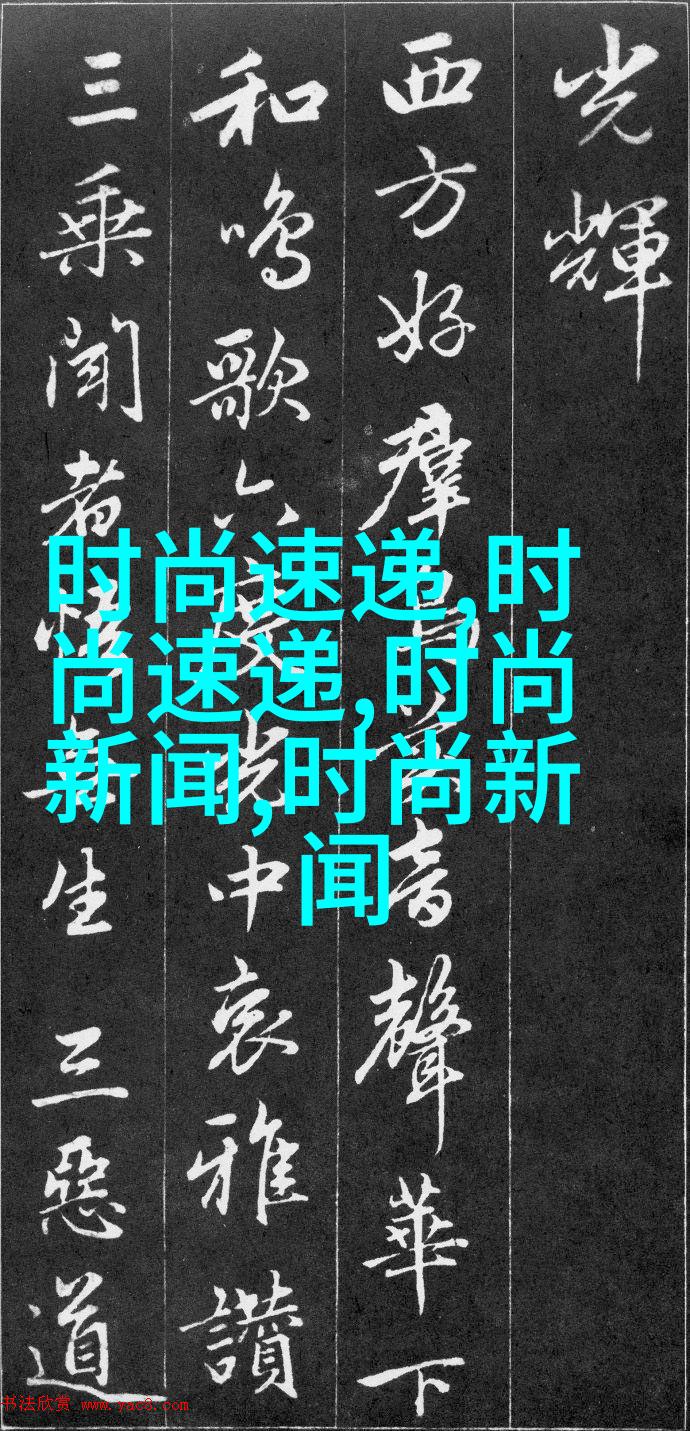 光輝
西方好群音聲華下
和鳴歌六度光中哀雅讚
三乘聞者悟無生 三惡道
时尚速递,时
尚速递,时尚
新闻,时尚新
闻
书法欣赏 www.yac8.com